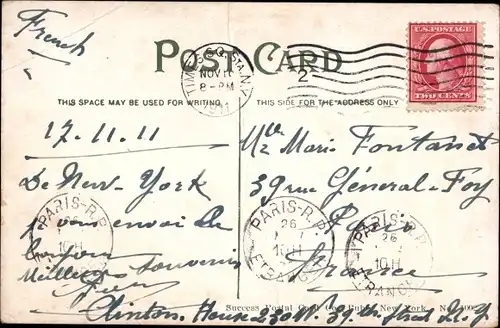 French
POST CARD
TIMES SQ. STA. N.Y.
NOV 17
8-PM
1911
2
U.S. POSTAGE
TWO CENTS
THIS SPACE MAY BE USED FOR WRITING
THIS SIDE FOR THE ADDRESS ONLY
17.11.11
De New-York
je vous envoi de
Meilleurs souvenirs
Mlle Marie Fontanet
39 rue Général-Foy
Paris
France
PARIS-R.P.
26
10H
ETRANGER
PARIS-R.P.
26
10H
ETRANGER
PARIS-R.P.
26
10H
ETRANGER
Success Postal Card Co., Publ., New York. No.
Clinton House 230 W. 39th Street N.Y.